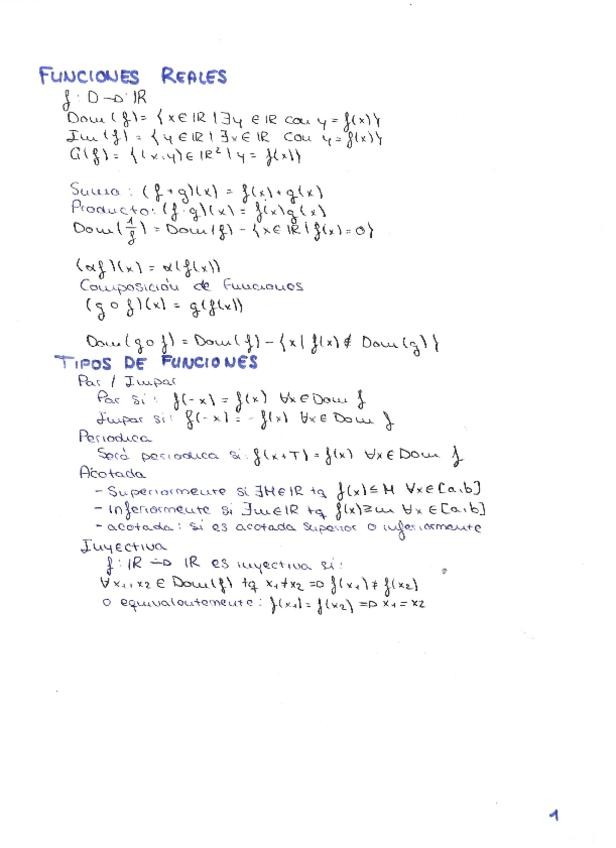 FUNCIONES REALES
f: D → ℝ
Dom(f) = {x ∈ ℝ | ∃y ∈ ℝ con y = f(x)}
Im(f) = {y ∈ ℝ | ∃x ∈ ℝ con y = f(x)}
G(f) = {(x,y) ∈ ℝ² | y = f(x)}
Suma: (f+g)(x) = f(x)+g(x)
Producto: (f·g)(x) = f(x)g(x)
Dom(1/f) = Dom(f) - {x ∈ ℝ | f(x) = 0}
(αf)(x) = α(f(x))
Composición de Funciones
(g ∘ f)(x) = g(f(x))
Dom(g ∘ f) = Dom(f) - {x | f(x) ∉ Dom(g)}
TIPOS DE FUNCIONES
Par / Impar
Par si: f(-x) = f(x) ∀x ∈ Dom f
Impar si: f(-x) = -f(x) ∀x ∈ Dom f
Periodica
Será periodica si: f(x+T) = f(x) ∀x ∈ Dom f
Acotada
- Superiormente si ∃M ∈ ℝ tq f(x) ≤ M ∀x ∈ [a,b]
- Inferiormente si ∃m ∈ ℝ tq f(x) ≥ m ∀x ∈ [a,b]
- acotada: si es acotada superior o inferiormente
Inyectiva
f: ℝ → ℝ es inyectiva si:
∀x₁,x₂ ∈ Dom(f) tq x₁ ≠ x₂ ⇒ f(x₁) ≠ f(x₂)
o equivalentemente: f(x₁) = f(x₂) ⇒ x₁ = x₂
1